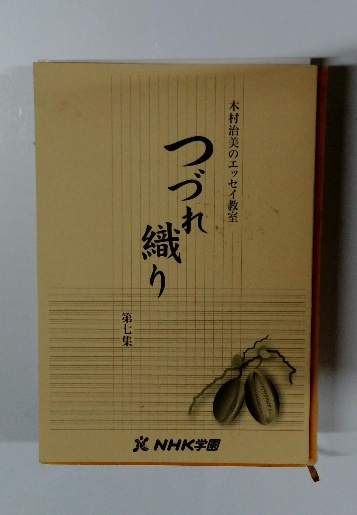 木村治美のエッセイ教室
つづれ
織り
第七集
NHK学園